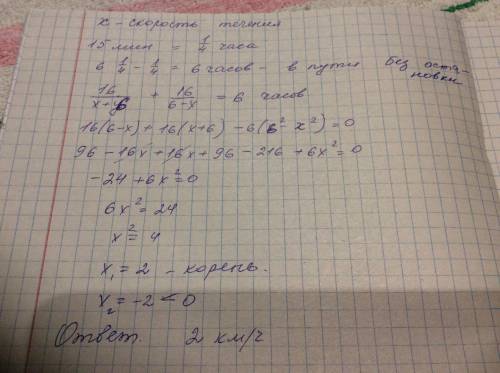 x - скорость течения
15 мин = 1/4 часа
6 1/4 - 1/4 = 6 часов - в пути без остановки
16/(x+6) + 16/(6-x) = 6 часов
16(6-x) + 16(x+6) - 6(6²-x²) = 0
96 - 16x + 16x + 96 - 216 + 6x² = 0
-24 + 6x² = 0
6x² = 24
x² = 4
x₁ = 2 - корень.
x₂ = -2 < 0
Ответ. 2 км/ч